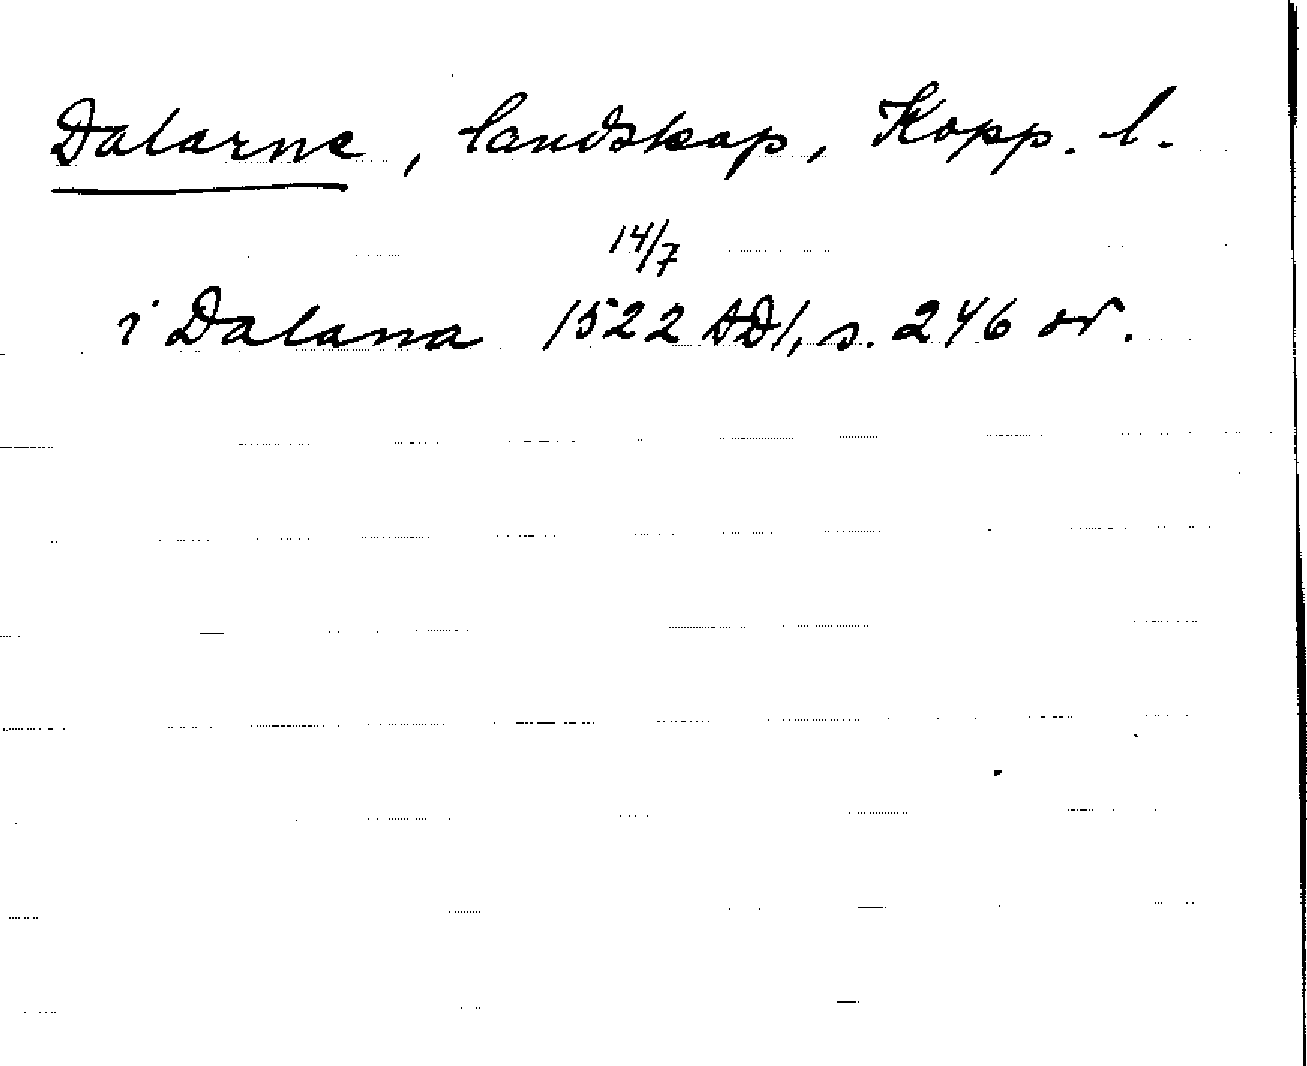 Dalarne, landskap, Kopp. l.
14/7
i Dalana 1522 DD1, s. 246 or.